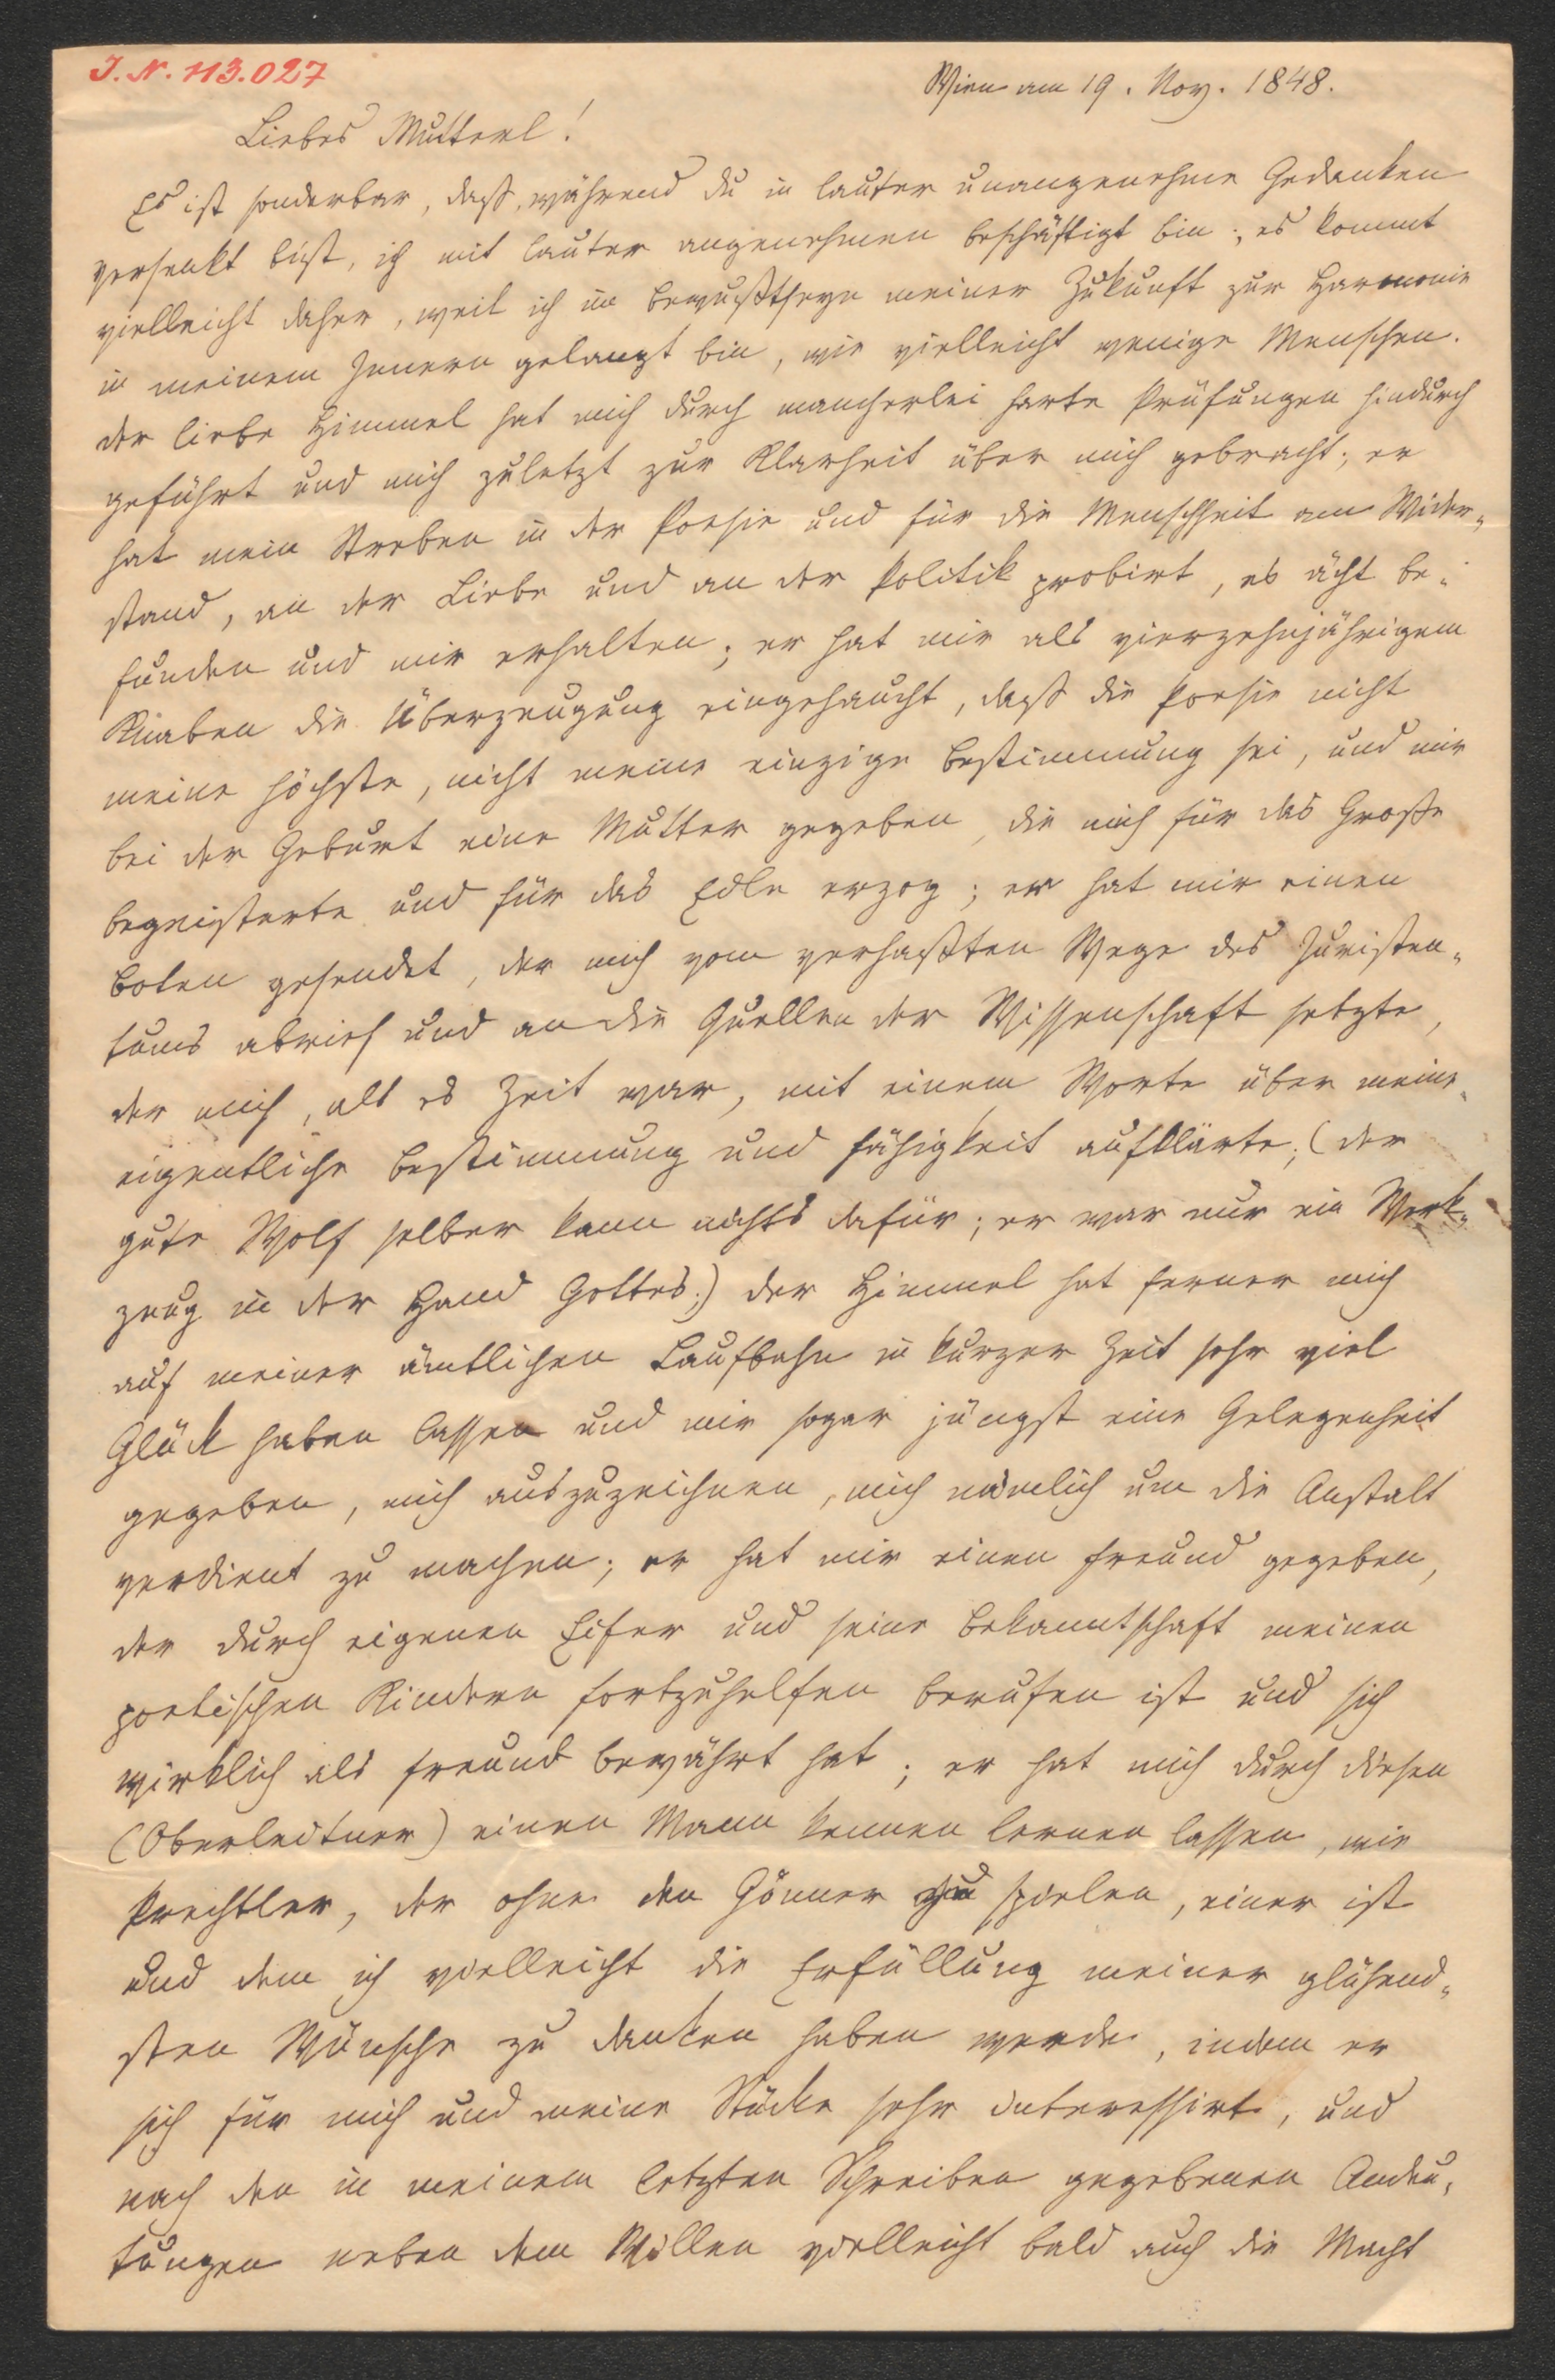 J. N. 113.027
Wien am 19. Nov. 1848.
Liebes Mutterl!
Es ist sonderbar, daß, während du in lauter unangenehme Gedanken
versenkt bist, ich mit lauter angenehmen beschäftigt bin; es kommt
vielleicht daher, weil ich im Bewußtseyn meiner Zukunft zur Harmonie
in meinem Innern gelangt bin, wie vielleicht wenige Menschen.
der liebe Himmel hat mich durch mancherlei harte Prüfungen hindurch
geführt und mich zuletzt zur Klarheit über mich gebracht; er
hat mein Streben in der Poesie und für die Menschheit am Wider-
stand, an der Liebe und an der Politik probirt, es ächt be-
funden und mir erhalten; er hat mir als vierzehnjährigem
Knaben die Überzeugung eingehaucht, daß die Poesie nicht
meine höchste, nicht meine einzige Bestimmung sei, und mir
bei der Geburt eine Mutter gegeben, die mich für das Große
begeisterte und für das Edle erzog; er hat mir einen
Boten gesendet, der mich vom verhaßten Wege des Juristen-
tums abrief und an die Quellen der Wissenschaft setzte,
der mich, als es Zeit war, mit einem Worte über meine
eigentliche Bestimmung und Fähigkeit aufklärte; (der
gute Wolf selber kann nichts dafür; er war nur ein Werk-
zeug in der Hand Gottes;) der Himmel hat ferner mich
auf meiner ämtlichen Laufbahn in kurzer Zeit sehr viel
Glück haben lassen und mir sogar jüngst eine Gelegenheit
gegeben, mich auszuzeichnen, mich nämlich um die Anstalt
verdient zu machen; er hat mir einen Freund gegeben,
der durch eigenen Eifer und seine Bekanntschaft meinen
poetischen Kindern fortzuhelfen berufen ist und sich
wirklich als Freund bewährt hat; er hat mich durch diesen
(Oberleitner) einen Mann kennen lernen lassen, wie
Prechtler, der ohne den Gönner zu spielen, einer ist
und dem ich vielleicht die Erfüllung meiner glühend-
sten Wünsche zu danken haben werde, indem er
sich für mich und meine Stücke sehr interessirt, und
nach den in meinem letzten Schreiben gegebenen Andeu-
tungen neben dem Willen vielleicht bald auch die Macht